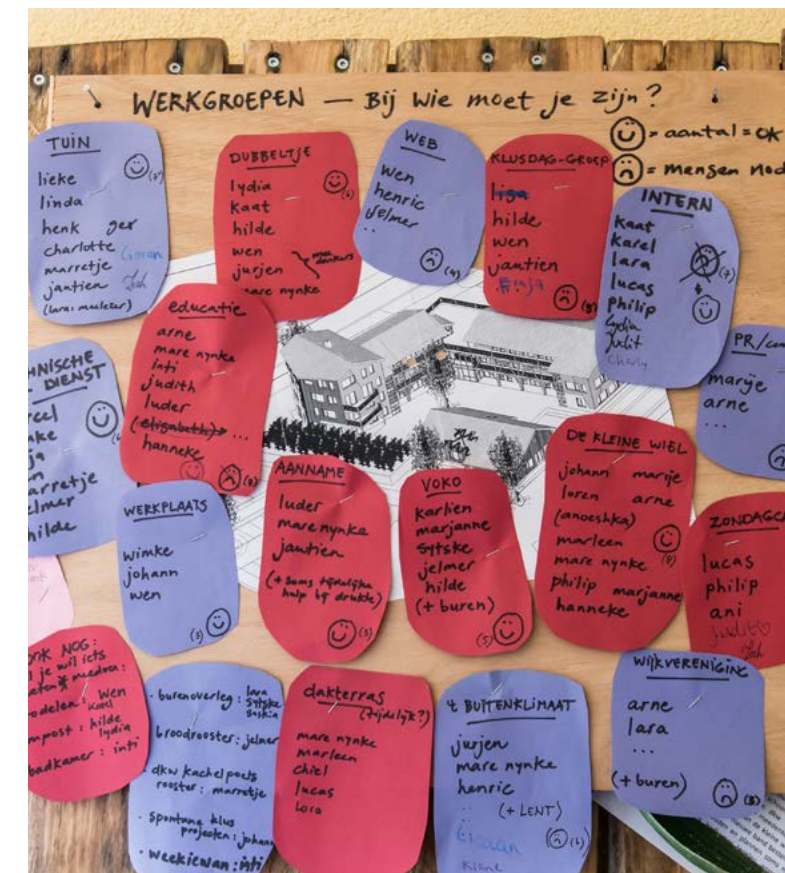 WERKGROEPEN — Bij wie moet je zijn?
= aantal = ok
= mensen nod
TUIN
lieke
linda
henk ger
charlotte
marretje
jantien
(7)
DUBBELTJE
lydia
kaat
hilde
wen
jurjen
mare nynke
WEB
wen
henric
jelmer
..
(4)
KLUSDAG-GROEP
hilde
wen
jantien
INTERN
kaat
karel
lara
lucas
philip
lydia
Judit
Charly
(7)
educatie
arne
mare nynke
inti
judith
luder
(elisabeth) ...
hanneke
HNISCHE
DIENST
arretje
elmer
hilde
PR/com
marije
arne
...
AANNAME
luder
mare nynke
jantien
(+ soms tijdelijke
hulp bij drukte)
(3)
VOKO
karlien
marjanne
sytske
jelmer
hilde
(+ buren)
(5)
DE KLEINE WIEL
johann marije
loren arne
(anoeshka)
marleen
mare nynke
philip marjanne
hanneke
WERKPLAATS
wimke
johann
wen
(3)
ZONDAGCA
lucas
philip
ani
Judit
OOK NOG:
je wil iets
meedoen:
odelen: wen
karel
mpost: hilde
lydia
badkamer: inti
· burenoverleg: lara
sytske
saskia
· broodrooster: jelmer
· dkw kachelpoets
rooster: marretje
· spontane klus
projecten: johan
· weekiewan: inti
dakterras
(tijdelijk?)
mare nynke
marleen
chiel
lucas
lora
't BUITENKLIMAAT
jurjen
mare nynke
henric
.. (+ LENT)
WIJKVERENIGING
arne
lara
...
(+ buren)